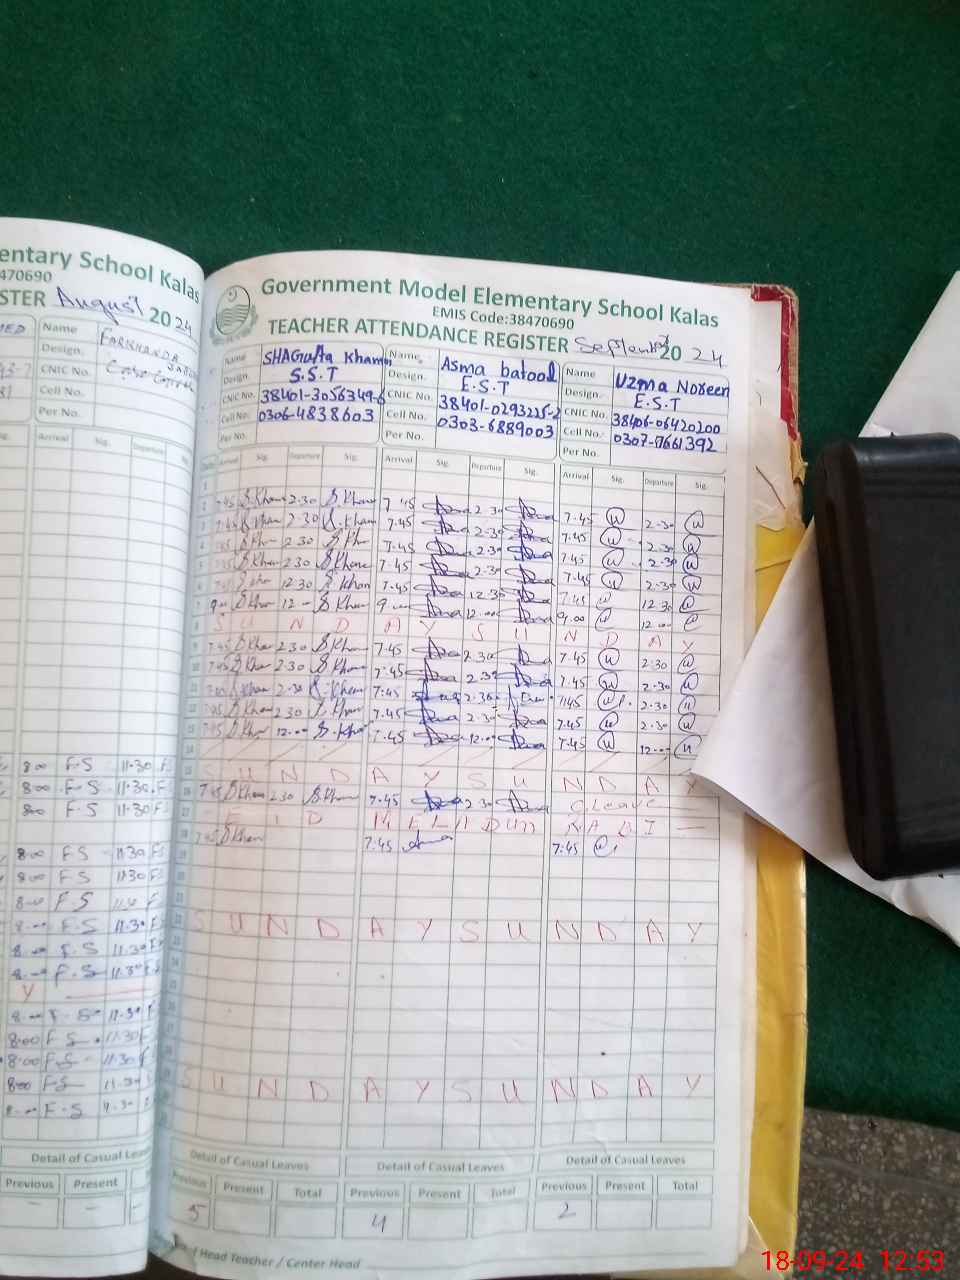 entary School Kalas
470690
STER August 2024
Name FARKHANDA
Design.
CNIC No.
Cell No.
Per No.
Arrival Sig. Departure Sig.
8:00 F.S 11.30 F
8:00 F.S 11.30 F
8:00 F.S 11.30 F
8:00 F.S 11.30 F.S
8:00 F.S 11.30 F
8:00 F.S 11.30 F
8:00 F.S 11.30 F
8:00 F.S 11.30 F
8:00 F.S 11.30 F.S
Y
8:00 F.S 11.30 F
8:00 F.S 11.30 F
8:00 F.S 11.30 F
8:00 F.S 11.30
8:00 F.S 11.30
Detail of Casual Leaves
Previous Present
– –
Government Model Elementary School Kalas
EMIS Code:38470690
TEACHER ATTENDANCE REGISTER September 2024
Name SHAGufta Khanam Name Asma batool Name Uzma Noreen
Design. S.S.T Design. E.S.T Design. E.S.T
CNIC No. 38401-3056349-6 CNIC No. 38401-0293225-2 CNIC No. 38406-06420200
Cell No. 0306-4838603 Cell No. 0303-6889003 Cell No. 0307-7661392
Per No. Per No. Per No.
Arrival Sig. Departure Sig. Arrival Sig. Departure Sig. Arrival Sig. Departure Sig.
1
2 7.45 S.Khan 2.30 S.Khan 7.45 2.30 7.45 U 2.30 U
3 7.45 S.Khan 2.30 S.Khan 7.45 2.30 7.45 U 2.30 U
4 7.45 S.Khan 2.30 S.Khan 7.45 2.30 7.45 U 2.30 U
5 7.45 S.Khan 2.30 S.Khan 7.45 2.30 7.45 U 2.30 U
6 7.45 S.Khan 12.30 S.Khan 7.45 12.30 7.45 12.30
7 9.00 S.Khan 12.00 S.Khan 9.00 12.00 9.00 12.00
8 S U N D A Y S U N D A Y
9 7.45 S.Khan 2.30 S.Khan 7.45 2.30 7.45 U 2.30
10 7.45 S.Khan 2.30 S.Khan 7.45 2.30 7.45 U 2.30 U
11 7.45 S.Khan 2.30 S.Khan 7:45 2.30 7.45 U 2.30 U
12 7.45 S.Khan 2.30 S.Khan 7.45 2.30 7.45 U 2.30 U
13 7.45 S.Khan 12.00 S.Khan 7.45 12.00 7.45 U 12.00 U
14
15 S U N D A Y S U N D A Y
16 7.45 S.Khan 2.30 S.Khan 7.45 2.30 C Leave
17 E I D M I L A D U N N A B I —
18 7.45 S.Khan 7:45 Asma 7:45
19
20
21
22 S U N D A Y S U N D A Y
23
24
25
26
27
28
29 S U N D A Y S U N D A Y
Detail of Casual Leaves Detail of Casual Leaves Detail of Casual Leaves
Previous Present Total Previous Present Total Previous Present Total
5 4 2
Head Teacher / Center Head
18-09-24 12:53